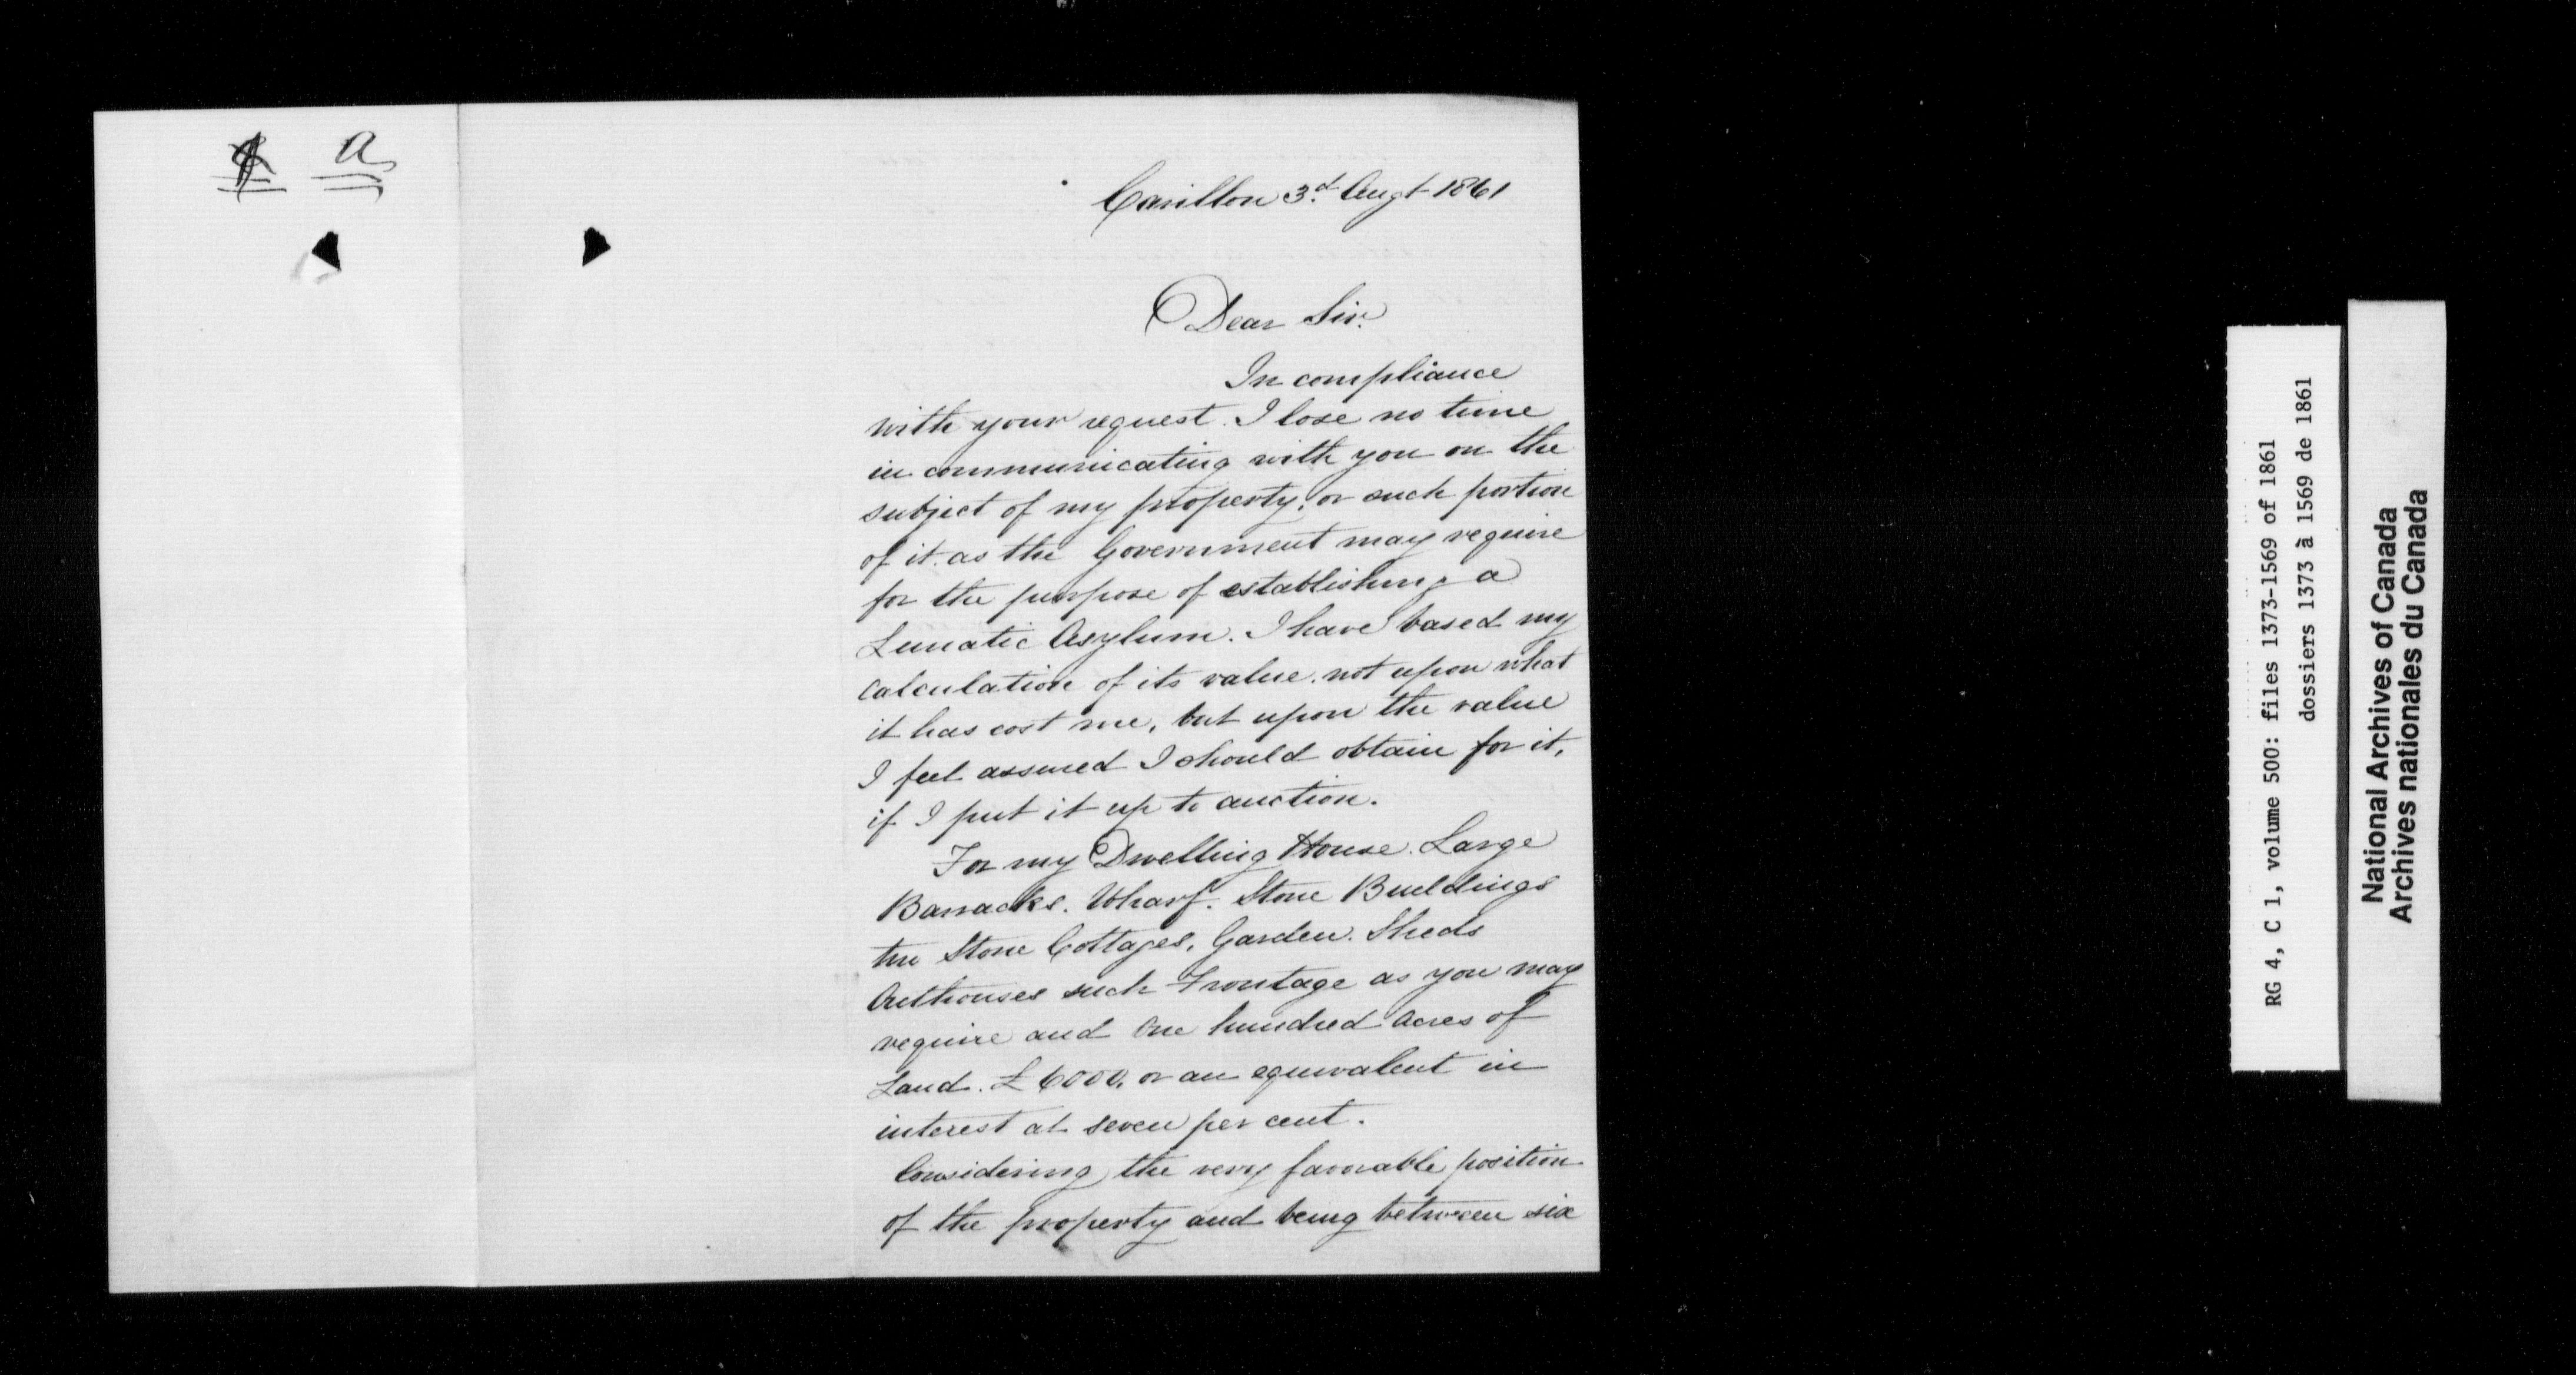 a
Carillon 3d. Augt 1861
Dear Sir.
In compliance
with your request. I lose no time
in communicating with you on the
subject of my property, or such portion
of it. as the Government may require
for the purpose of establishing a
Lunatic Asylum. I have based my
calculation of its value. not upon what
it has cost me, but upon the value
I feel assured I should obtain for it,
if I put it up to auction.
For my Dwelling House. Large
Barracks. Wharf. Stone Buildings
Stone Cottages, Garden. Sheds
Outhouses such Frontage as you may
require and One hundred Acres of
Land. £6000, or an equivalent in
interest at seven per cent.
Considering the very favorable position
of the property and being between six
RG 4, C 1, volume 500: files 1373-1569 of 1861
dossiers 1373 à 1569 de 1861
National Archives of Canada
Archives nationales du Canada